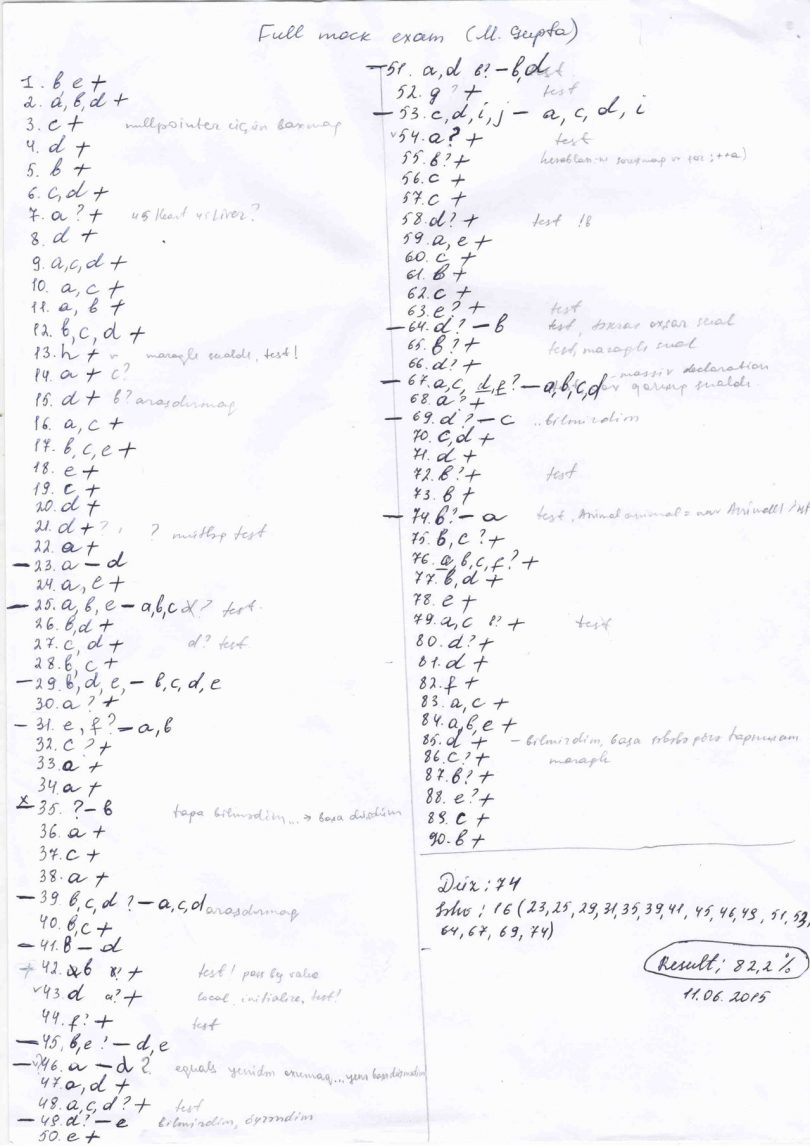 Full mock exam (M. Gupta)
1. b, e +
2. a, b, d +
3. c +
4. d +
5. b +
6. c, d +
7. a ? +
8. d +
9. a, c, d +
10. a, c +
11. a, b +
12. b, c, d +
13. h + maraqlı sualdı, test!
14. a + c?
15. d + b? araşdırmaq
16. a, c +
17. b, c, e +
18. e +
19. c +
20. d +
21. d + ? ? test
22. a +
— 23. a — d
24. a, e +
— 25. a, b, e — a, b, c d? test
26. b, d +
27. c, d + d? test
28. b, c +
— 29. b, d, e, — b, c, d, e
30. a ? +
— 31. e, f ? — a, b
32. c ? +
33. a +
34. a +
35. ? — b
36. a +
37. c +
38. a +
— 39. b, c, d ? — a, c, d araşdırmaq
40. b, c +
— 41. b — d
+ 42. b +  test! pass by value
v 43. d a? + local, initialize, test!
44. f? + test
— 45. b, e ? — d, e
— 46. a — d ? equals
47. a, d +
48. a, c, d ? + test
— 49. d? — e bilmirdim, öyrəndim
50. e +
— 51. a, d b? — b, d test
52. g ? + test
— 53. c, d, i, j — a, c, d, i
v 54. a ? + test
55. b? +
56. c +
57. c +
58. d? + test !8
59. a, e +
60. c +
61. b +
62. c +
63. e? + test
— 64. d? — b test, sual
65. b? + test, maraqlı sual
66. d? +
— 67. a, c, d, f ? — a, b, c, d massiv declaration
68. a ? + sualdı
— 69. d ? — c ..bilmirdim
70. c, d +
71. d +
72. b? + test
73. b +
— 74. b? — a test, Animal animal = new Animal()
75. b, c ? +
76. a, b, c, f ? +
77. b, d +
78. e +
79. a, c b? + test
80. d? +
81. d +
82. f +
83. a, c +
84. a, b, e +
85. d + — bilmirdim,
86. c? + maraqlı
87. b? +
88. e? +
89. c +
90. b +
Düz : 74
16 (23, 25, 29, 31, 35, 39, 41, 45, 46, 49, 51, 53,
64, 67, 69, 74)
Result : 82,2 %
11.06.2015